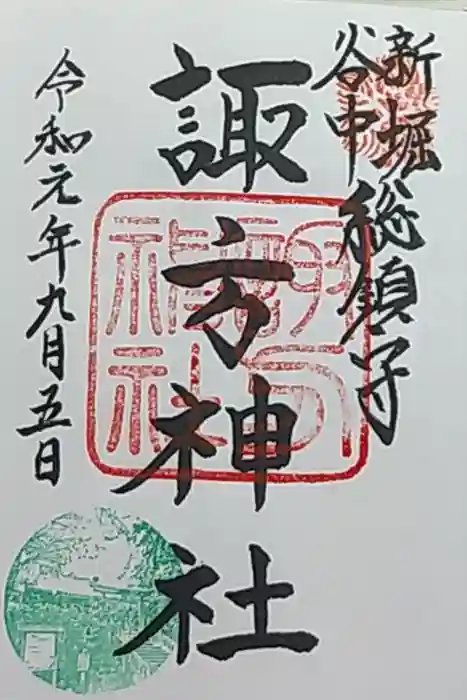 新堀
谷中
総鎮守
諏方神社
令和元年九月五日